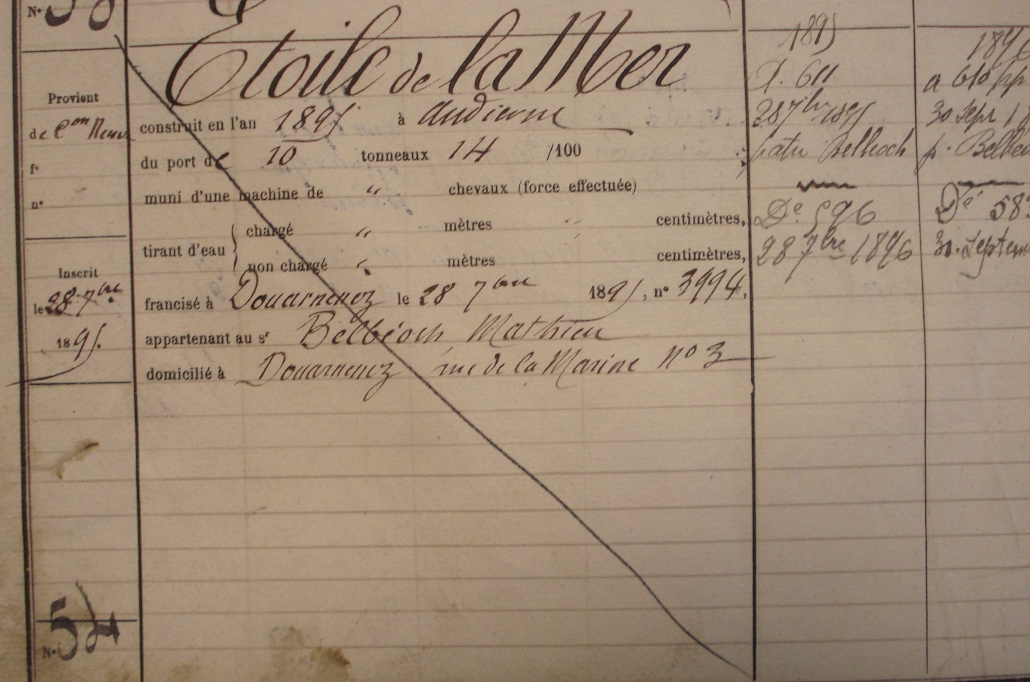 N°
Etoile de la Mer
Provient
de Con Neuve
f°
n°
construit en l'an 1895 à Audierne
du port de 10 tonneaux 14 /100
muni d'une machine de " chevaux (force effectuée)
tirant d'eau { chargé " mètres " centimètres,
non chargé " mètres centimètres,
Inscrit
le 28 7bre
1895.
francisé à Douarnenez le 28 7bre 1895, n° 3994,
appartenant au sr Belbéoch Mathieu
domicilié à Douarnenez rue de la Marine n° 3
N° 54
1895
D. 611
28 7bre 1895
patn Belbéoch
Dé 596
28 7bre 1896
1896
a 610
30 Sept
p. Belbeo
Dé 58
30 Septem